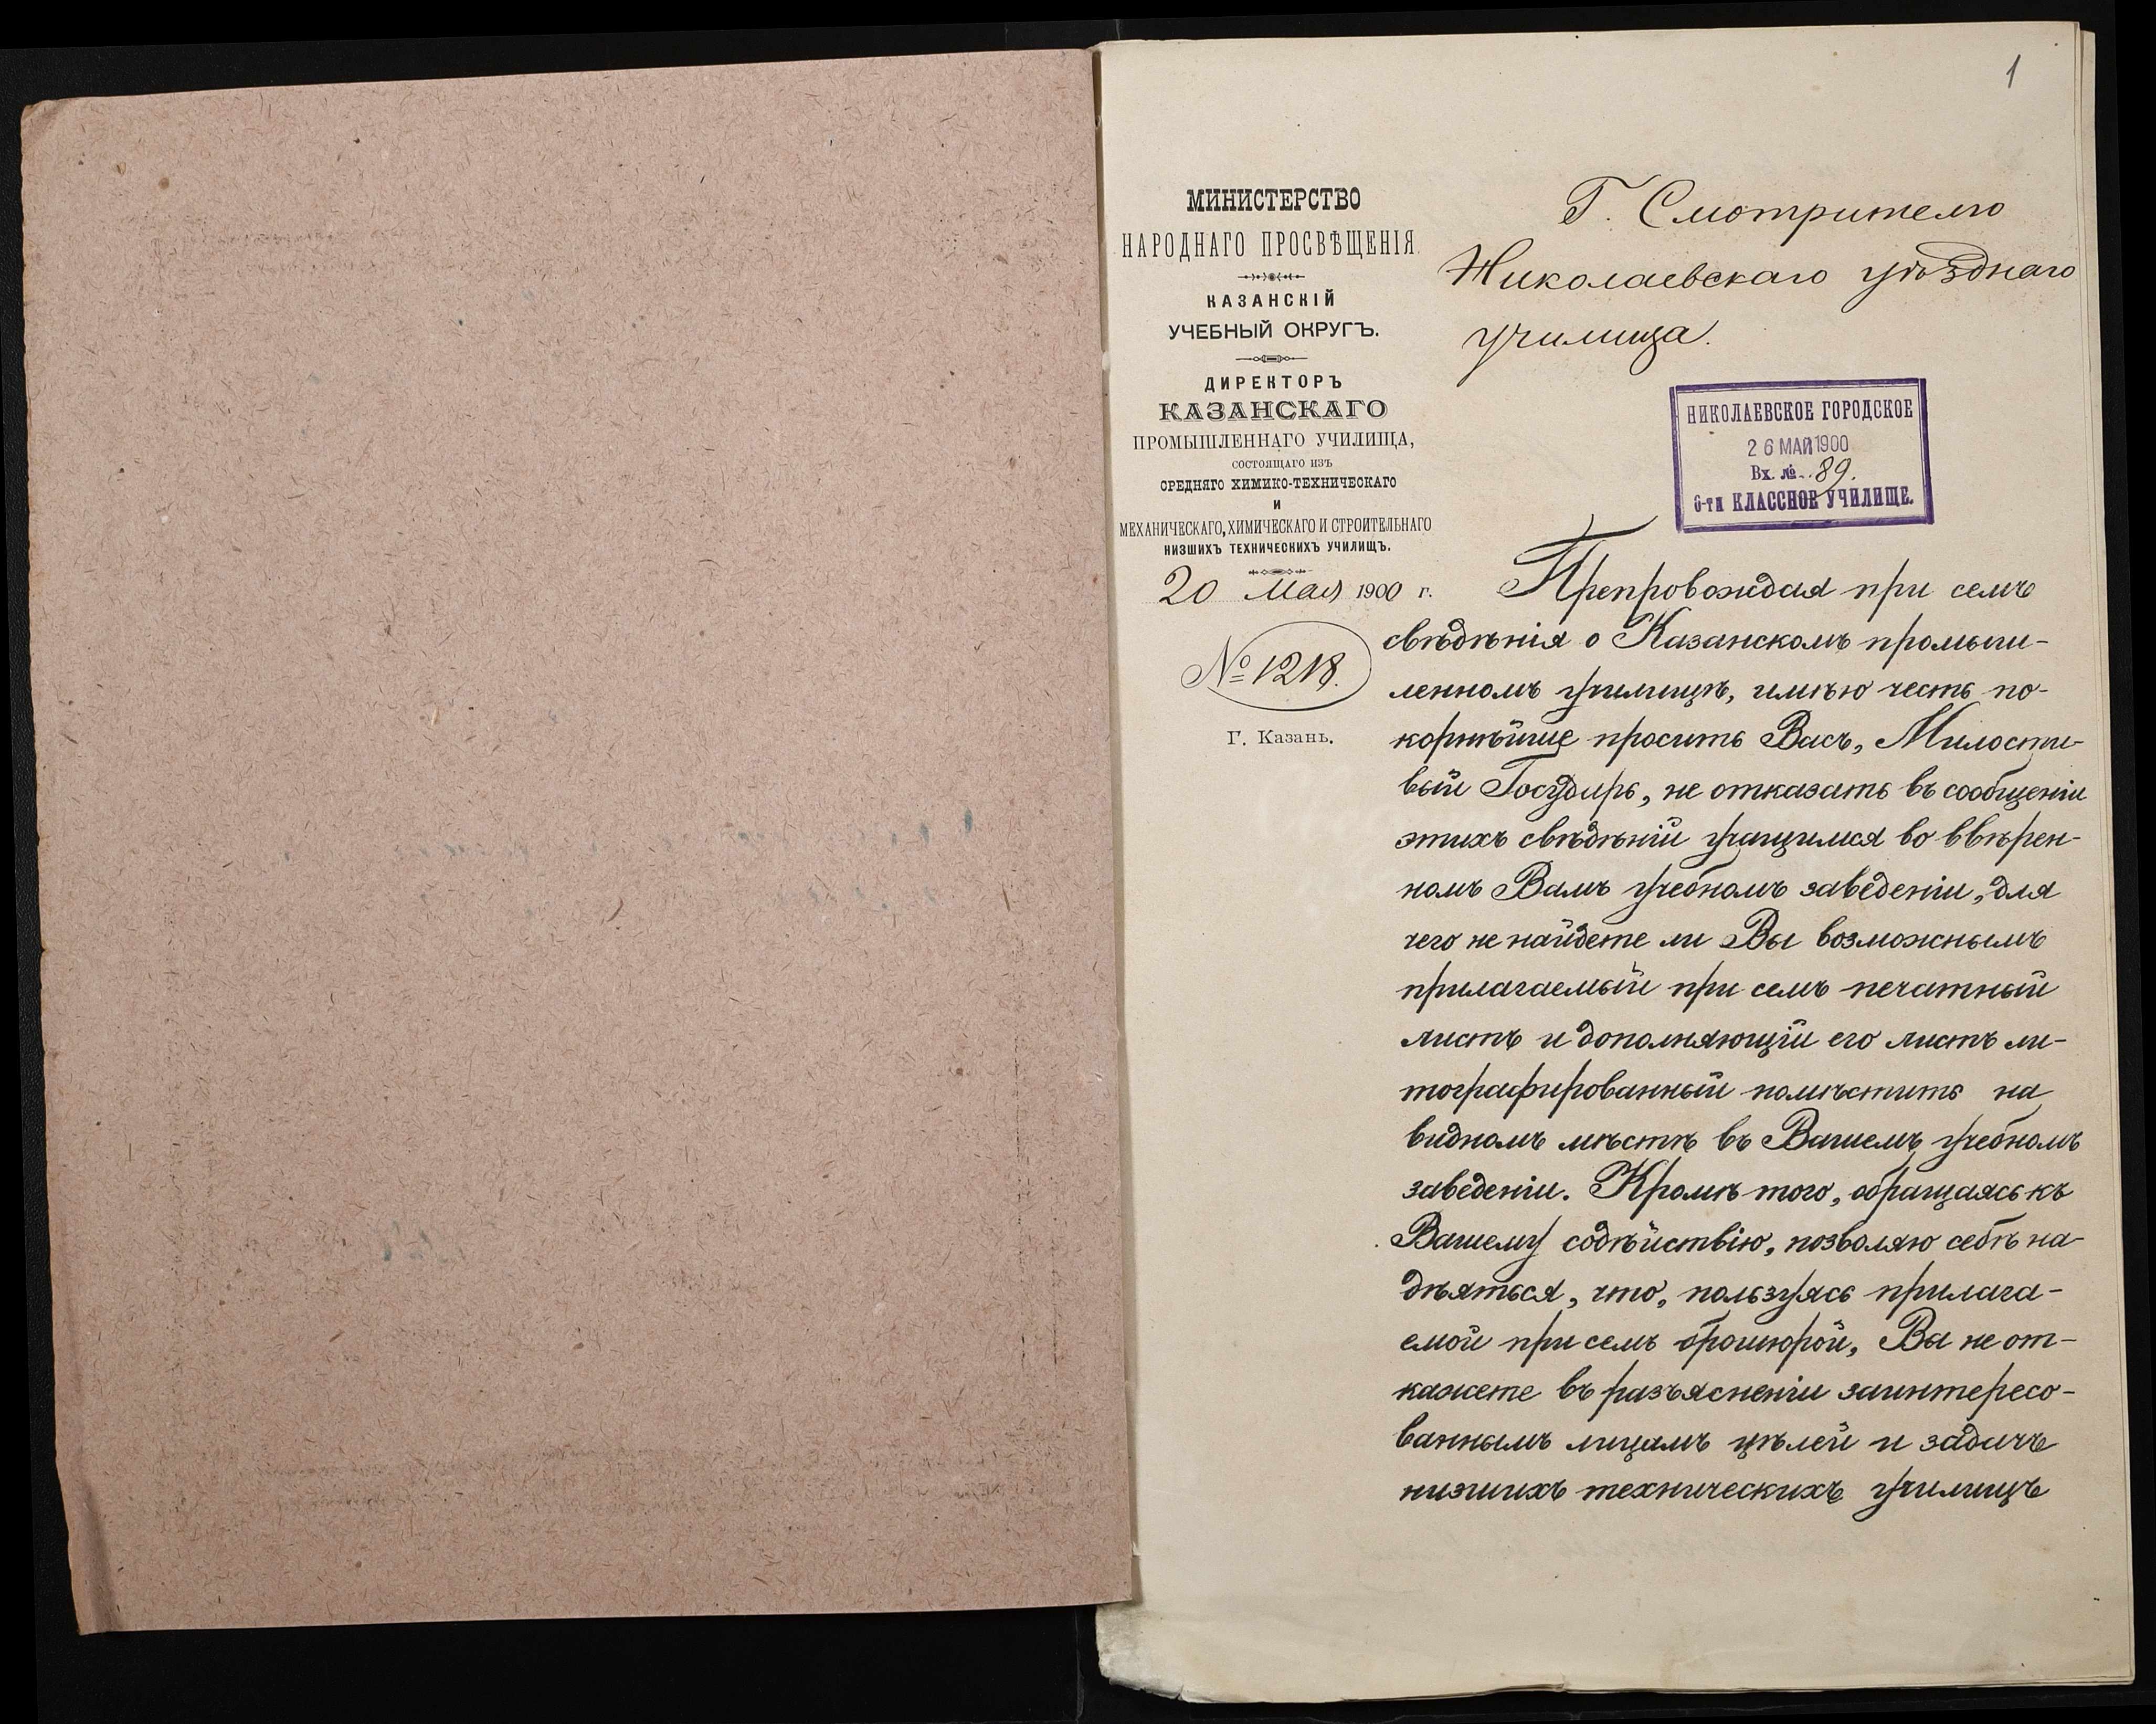 1
МИНИСТЕРСТВО
НАРОДНАГО ПРОСВѢЩЕНІЯ.
КАЗАНСКІЙ
УЧЕБНЫЙ ОКРУГЪ.
ДИРЕКТОРЪ
КАЗАНСКАГО
ПРОМЫШЛЕННАГО УЧИЛИЩА,
СОСТОЯЩАГО ИЗЪ
СРЕДНЯГО ХИМИКО-ТЕХНИЧЕСКАГО
И
МЕХАНИЧЕСКАГО, ХИМИЧЕСКАГО И СТРОИТЕЛЬНАГО
НИЗШИХЪ ТЕХНИЧЕСКИХЪ УЧИЛИЩЪ.
20 Мая 1900 г.
№ 1218.
Г. Казань.
Г. Смотрителю
Николаевскаго уѣзднаго
училища.
НИКОЛАЕВСКОЕ ГОРОДСКОЕ
26 МАЙ 1900
Вх. № 89.
6-ти КЛАССНОЕ УЧИЛИЩЕ.
Препровождая при семъ
свѣдѣнія о Казанскомъ промыш-
ленномъ училищѣ, имѣю честь по-
корнѣйше просить Васъ, Милости-
вый Государь, не отказать въ сообщеніи
этихъ свѣдѣній учащимся во ввѣрен-
номъ Вамъ учебномъ заведеніи, для
чего не найдете ли Вы возможнымъ
прилагаемый при семъ печатный
листъ и дополняющій его листъ ли-
тографированный помѣстить на
видномъ мѣстѣ въ Вашемъ учебномъ
заведеніи. Кромѣ того, обращаясь къ
Вашему содѣйствію, позволяю себѣ на-
дѣяться, что, пользуясь прилага-
емой при семъ брошюрой, Вы не от-
кажете въ разъясненіи заинтересо-
ваннымъ лицамъ цѣлей и задачъ
низшихъ техническихъ училищъ